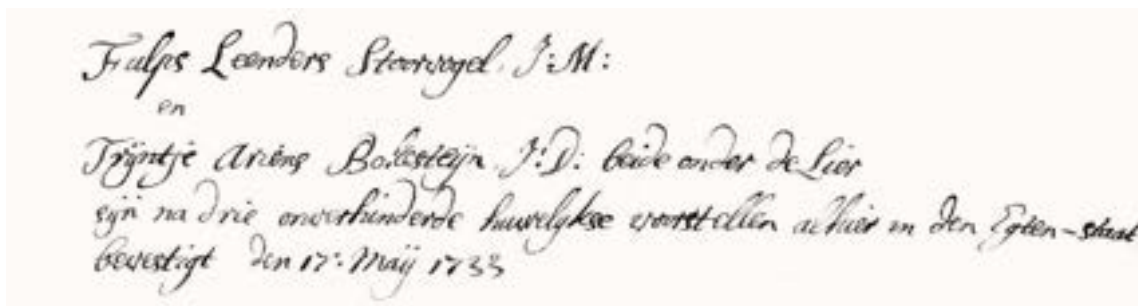 Fulps Leenders Stoorvogel. J:M:
en
Trÿntje Ariens Bollesteÿn. J:D: beide onder de Lier
sÿn na drie onverhinderde huwelykse voorstellen alhier in den Egten-staat
bevestigt den 17: Maÿ 1733